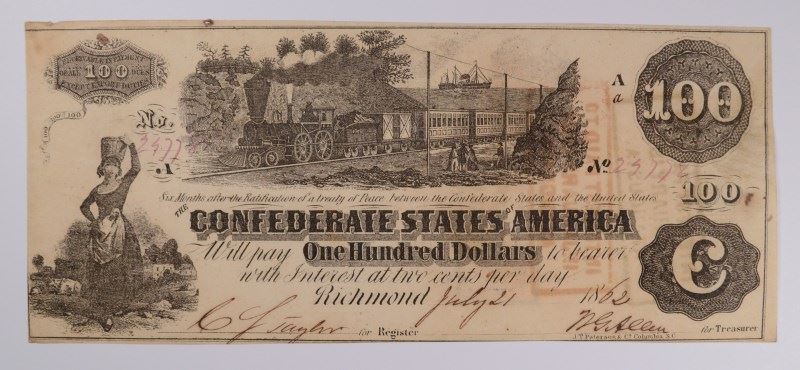 RECEIVABLE IN PAYMENT
OF ALL 100 DUES
EXCEPT EXPORT DUTIES
100
No.
A
A
a
100
No.
100
Six Months after the Ratification of a treaty of Peace between the Confederate States and the United States
THE CONFEDERATE STATES OF AMERICA
Will pay One Hundred Dollars to bearer
with Interest at two cents per day
Richmond July 21 1862
C
C J Taylor for Register
W G Allen for Treasurer
J.T. Paterson & Co. Columbia S.C.